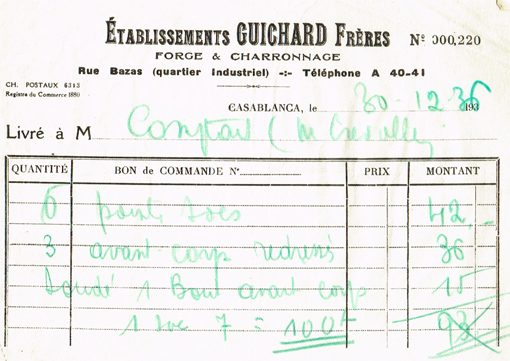 ÉTABLISSEMENTS GUICHARD FRÈRES Nº 000,220
FORGE & CHARRONNAGE
Rue Bazas (quartier Industriel) -:- Téléphone A 40-41
CH. POSTAUX 6313
Registre du Commerce 1880
CASABLANCA, le 30-12-36 193
Livré à M
QUANTITÉ BON de COMMANDE Nº PRIX MONTANT
6 pointe socs 42,-
3 avant corp 36
Soudé 1 Bout avant corp 15
1 soc 7 = 100f 93